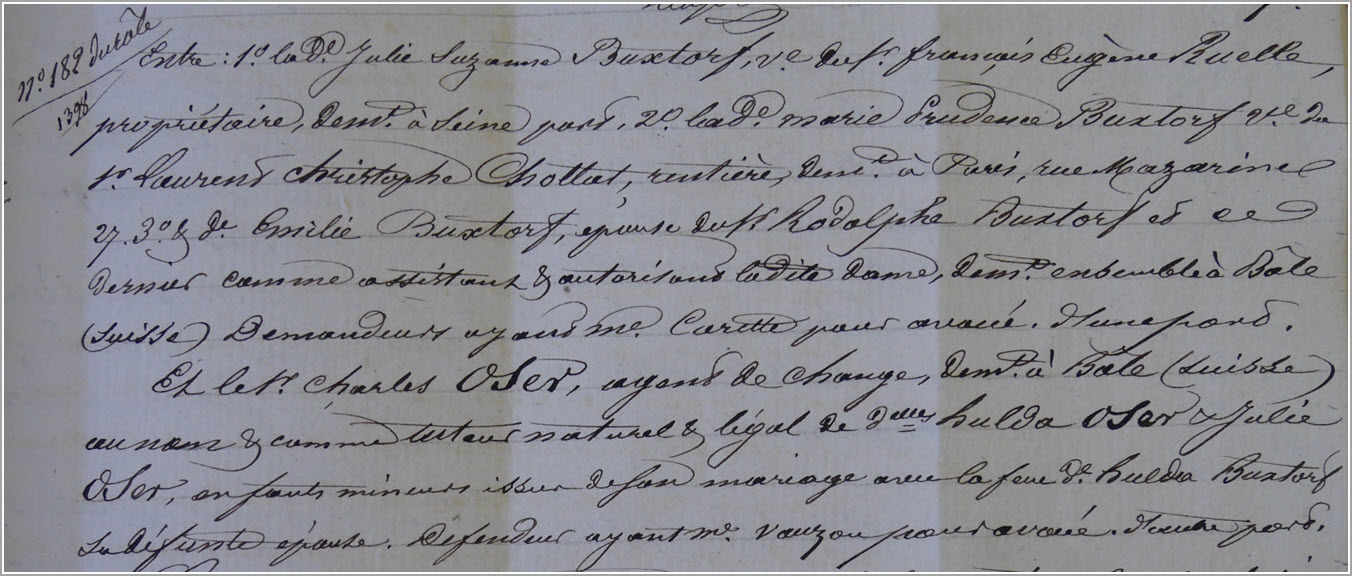 N.° 182 du rôle
1328
Entre : 1.° la d.e Julie Suzanne Buxtorf, v.e du s.r françois Eugène Ruelle,
propriétaire, dem.t à Seine port, 2.° la d.e marie Prudence Buxtorf v.e du
s.r Laurent christophe Chollat, rentière, dem.t à Paris, rue Mazarine
27. 3.° & d.e Emilie Buxtorf, épouse du s.r Rodolphe Buxtorf et ce
dernier comme assistant & autorisant ladite dame, dem.t ensemble à Bâle
(suisse) Demandeurs ayant m.e Carette pour avoué. D'une part.
Et le s.r charles OSer, agent de change, dem.t à Bâle (suisse)
au nom & comme tuteur naturel & légal de d.elles hulda OSer & Julie
OSer, enfants mineurs issus de son mariage avec la feue d.e hulda Buxtorf
sa défunte épouse. Défendeur ayant m.e Vauzou pour avoué. D'autre part.